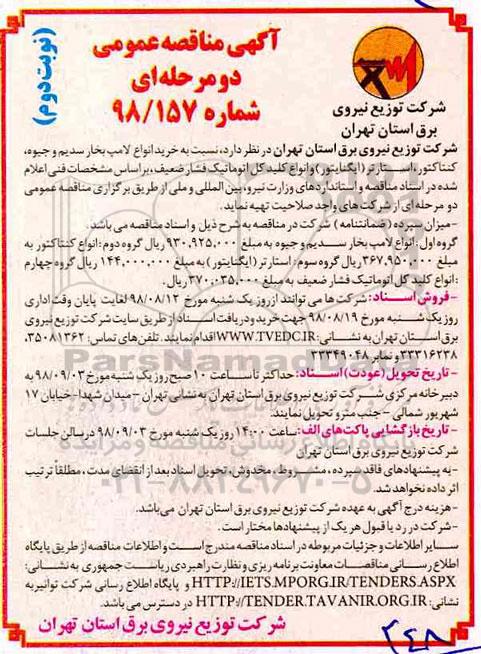 (نوبت دوم)
آگهی مناقصه عمومی
دو مرحله‌ای
شماره ۹۸/۱۵۷
شرکت توزیع نیروی
برق استان تهران
شرکت توزیع نیروی برق استان تهران در نظر دارد، نسبت به خرید انواع لامپ بخار سدیم و جیوه،
کنتاکتور، استارتر (ایگنایتور) و انواع کلید کل اتوماتیک فشار ضعیف، براساس مشخصات فنی اعلام
شده در اسناد مناقصه و استانداردهای وزارت نیرو، بین المللی و ملی از طریق برگزاری مناقصه عمومی
دو مرحله ای از شرکت های واجد صلاحیت تهیه نماید.
-میزان سپرده (ضمانتنامه) شرکت در مناقصه به شرح ذیل و اسناد مناقصه می باشد.
گروه اول: انواع لامپ بخار سدیم و جیوه به مبلغ ۹۳۰,۹۲۵,۰۰۰ ریال گروه دوم: انواع کنتاکتور به
مبلغ ۳۶۷,۹۵۰,۰۰۰ ریال گروه سوم: استارتر (ایگنایتور) به مبلغ ۱۴۴,۰۰۰,۰۰۰ ریال گروه چهارم
: انواع کلید کل اتوماتیک فشار ضعیف به مبلغ ۳۷۰,۰۳۵,۰۰۰ ریال.
-فروش اسناد: شرکت ها می توانند از روز یک شنبه مورخ ۹۸/۰۸/۱۲ لغایت پایان وقت اداری
روز یک شنبه مورخ ۹۸/۰۸/۱۹ جهت خرید و دریافت اسناد از طریق سایت شرکت توزیع نیروی
برق استان تهران به نشانی: WWW.TVEDC.IR اقدام نمایند. تلفن های تماس: ۳۵۰۸۱۳۶۲،
۳۳۳۱۶۲۳۸ و نمابر ۳۳۳۴۹۰۴۸
-تاریخ تحویل (عودت) اسناد: حداکثر تا ساعت ۱۰ صبح روز یک شنبه مورخ ۹۸/۰۹/۰۳ به
دبیرخانه مرکزی شرکت توزیع نیروی برق استان تهران به نشانی تهران – میدان شهدا- خیابان ۱۷
شهریور شمالی – جنب مترو تحویل نمایند.
-تاریخ بازگشایی پاکت های الف: ساعت ۱۴۰۰ روز یک شنبه مورخ ۹۸/۰۹/۰۳ در سالن جلسات
شرکت توزیع نیروی برق استان تهران
-به پیشنهادهای فاقد سپرده، مشروط، مخدوش، تحویل اسناد بعد از انقضای مدت، مطلقا ترتیب
اثر داده نخواهد شد.
-هزینه درج آگهی به عهده شرکت توزیع نیروی برق استان تهران می‌باشد.
-شرکت در رد یا قبول هر یک از پیشنهادها مختار است.
سایر اطلاعات و جزئیات مربوطه در اسناد مناقصه مندرج است و اطلاعات مناقصه از طریق پایگاه
اطلاع رسانی مناقصات معاونت برنامه ریزی و نظارت راهبردی ریاست جمهوری به نشانی:
HTTP://IETS.MPORG.IR/TENDERS.ASPX و پایگاه اطلاع رسانی شرکت توانیر به
نشانی: HTTP://TENDER.TAVANIR.ORG.IR در دسترس می باشد.
شرکت توزیع نیروی برق استان تهران
۲۴۸
ParsNamadData
۰۲۱-۸۸۳۴۹۶۷۰-۵